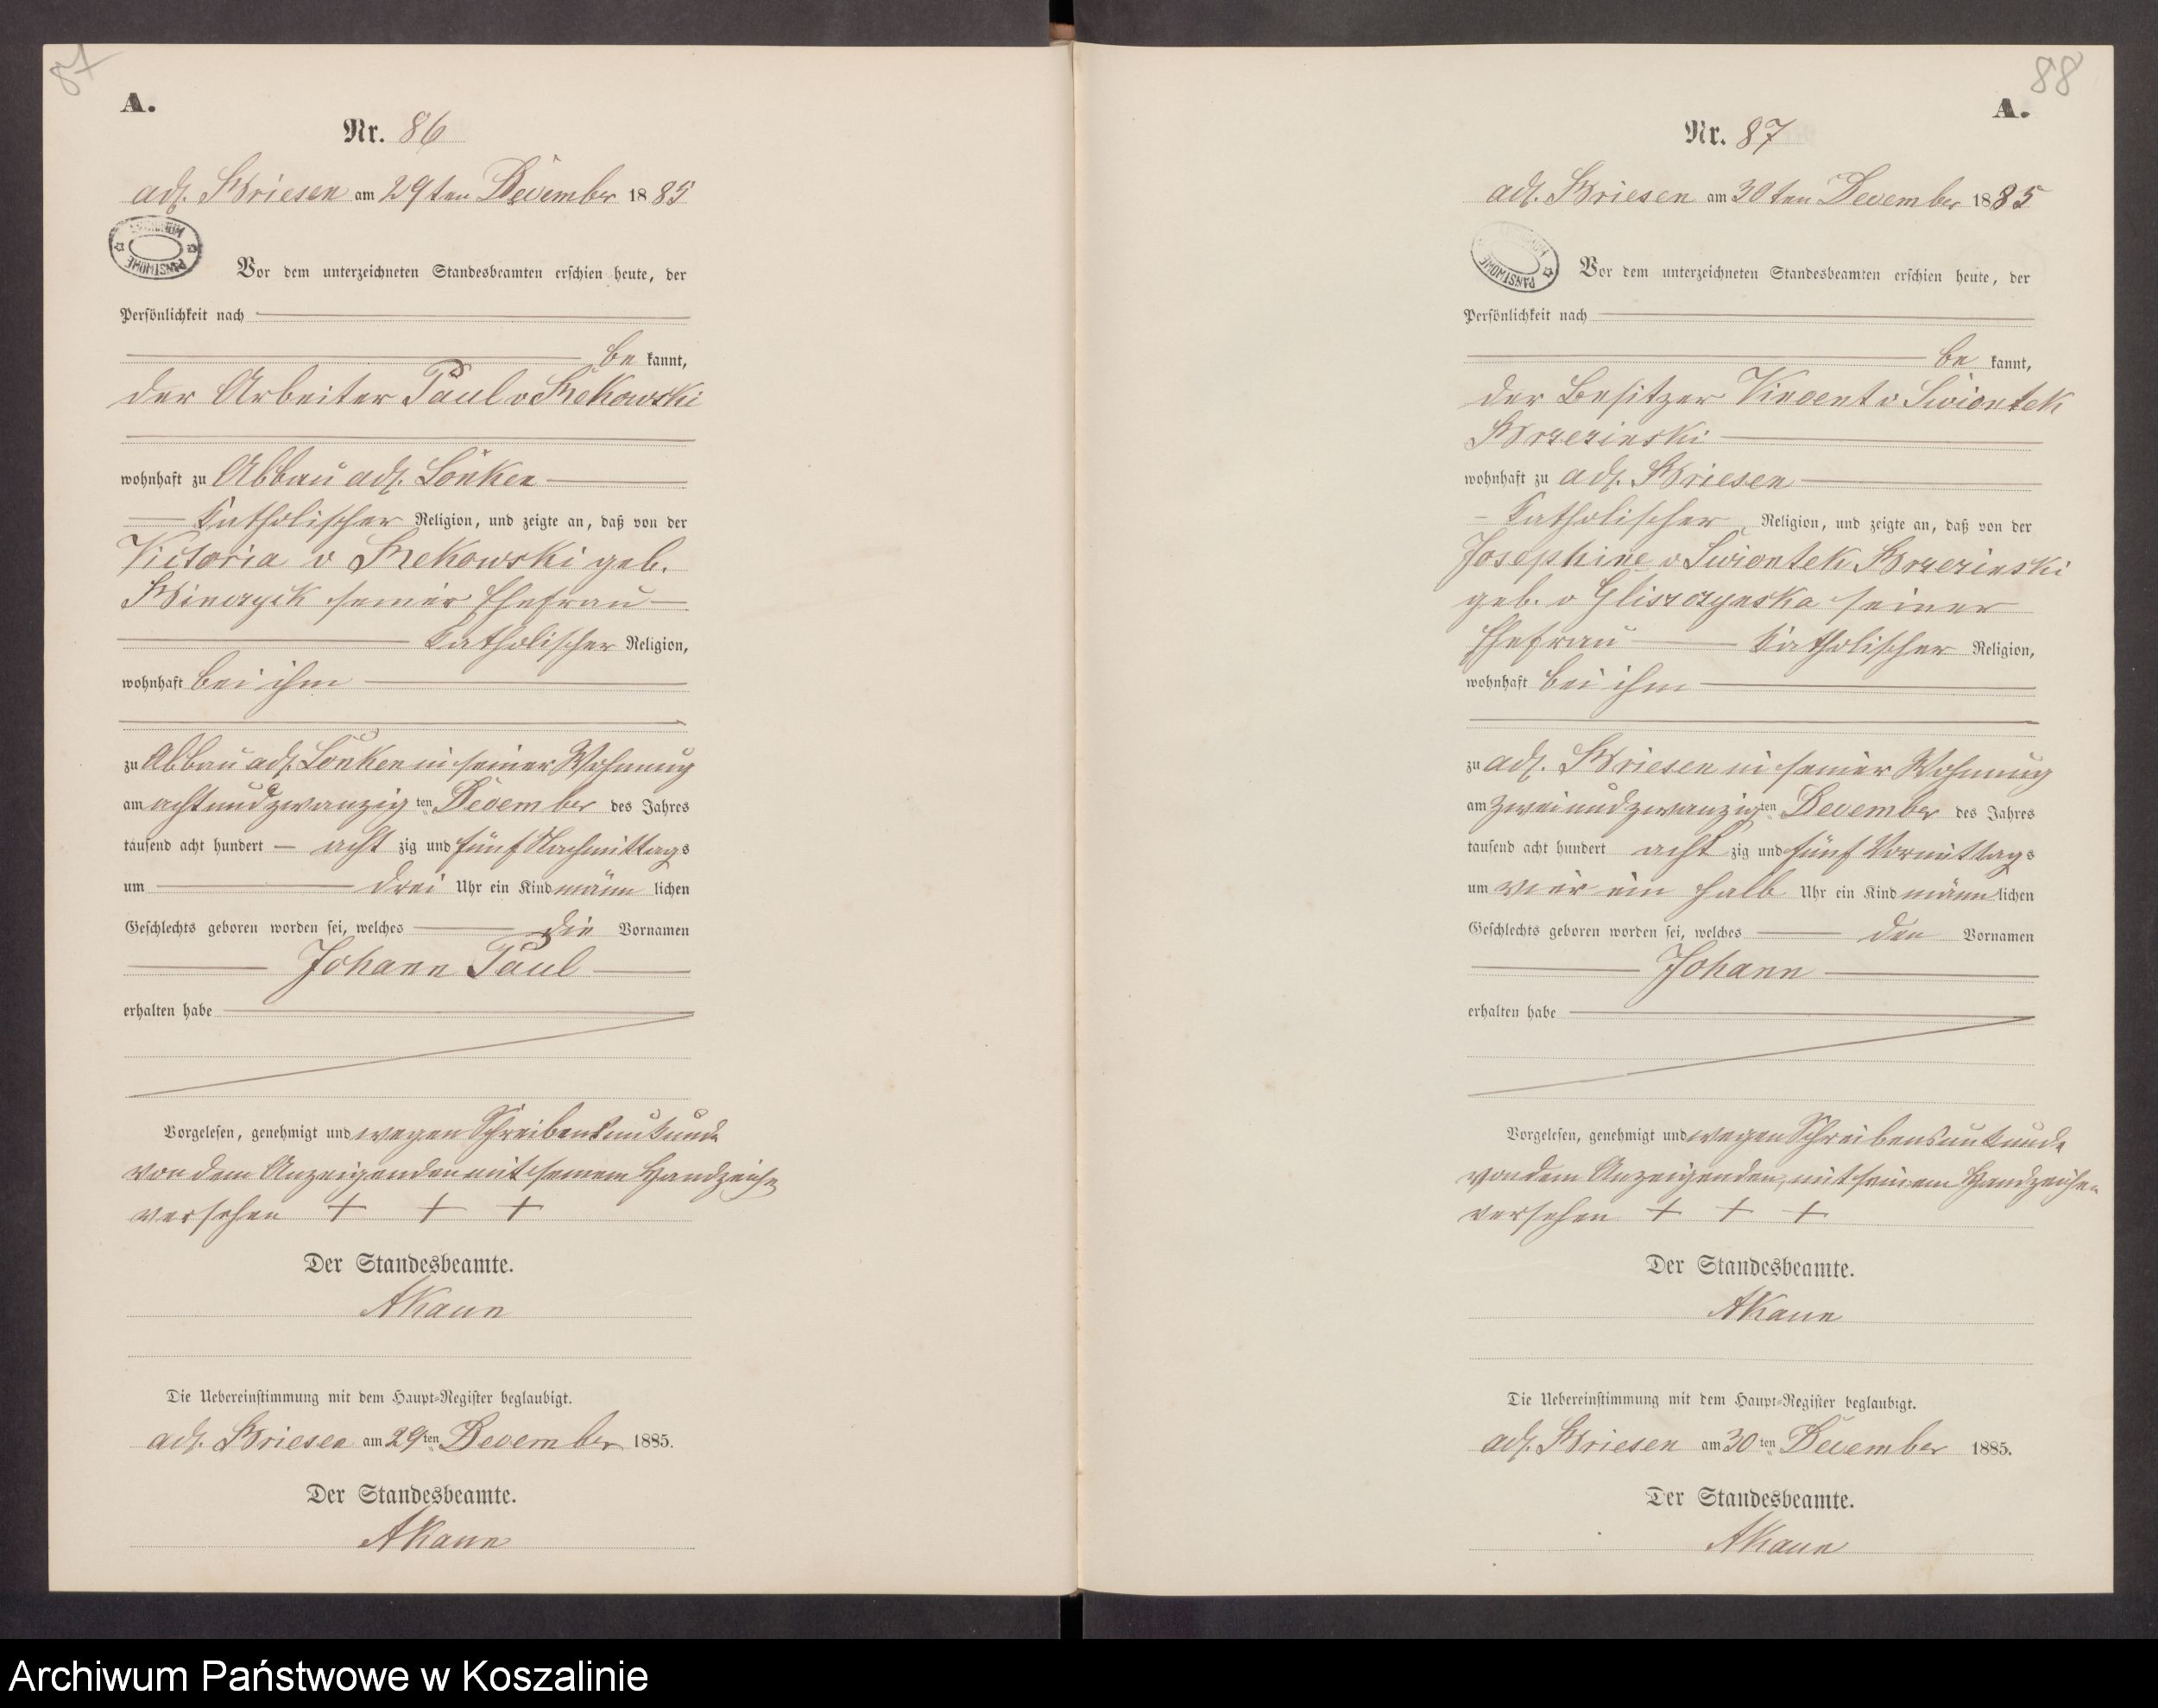 87
A.
Nr. 86
adl. Briesen am 29ten December 1885
Vor dem unterzeichneten Standesbeamten erschien heute, der
Persönlichkeit nach
be kannt,
der Arbeiter Paul v
wohnhaft zu Abbau adl. Lonken
Katholischer Religion, und zeigte an, daß von der
Victoria v geb.
seiner Ehefrau
Katholischer Religion,
wohnhaft bei ihm
zu Abbau adl. Lonken in seiner Wohnung
am achtundzwanzig ten December des Jahres
tausend acht hundert acht zig und fünf Nachmittags
um drei Uhr ein Kind männ lichen
Geschlechts geboren worden sei, welches die Vornamen
Johann Paul
erhalten habe
Vorgelesen, genehmigt und wegen Schreibensunkunde
von dem Anzeigenden mit seinem Handzeichen
versehen + + +
Der Standesbeamte.
AKaun
Die Uebereinstimmung mit dem Haupt-Register beglaubigt.
adl. Briesen am 29ten December 1885.
Der Standesbeamte.
AKaun
88
A.
Nr. 87
adl. Briesen am 30ten December 1885
PAŃSTWOWE
Vor dem unterzeichneten Standesbeamten erschien heute, der
Persönlichkeit nach
be kannt,
der Besitzer Vincent v Swiontek
Brzezinski
wohnhaft zu adl. Briesen
Katholischer Religion, und zeigte an, daß von der
Josephine v Swiontek Brzezinski
geb. v Gliszczynska seiner
Ehefrau Katholischer Religion,
wohnhaft bei ihm
zu adl. Briesen in seiner Wohnung
am zweiundzwanzig ten December des Jahres
tausend acht hundert acht zig und fünf Vormittags
um vier ein halb Uhr ein Kind männ lichen
Geschlechts geboren worden sei, welches den Vornamen
Johann
erhalten habe
Vorgelesen, genehmigt und wegen Schreibensunkunde
von dem Anzeigenden, mit seinem Handzeichen
versehen + + +
Der Standesbeamte.
AKaun
Die Uebereinstimmung mit dem Haupt-Register beglaubigt.
adl. Briesen am 30ten December 1885.
Der Standesbeamte.
AKaun
Archiwum Państwowe w Koszalinie